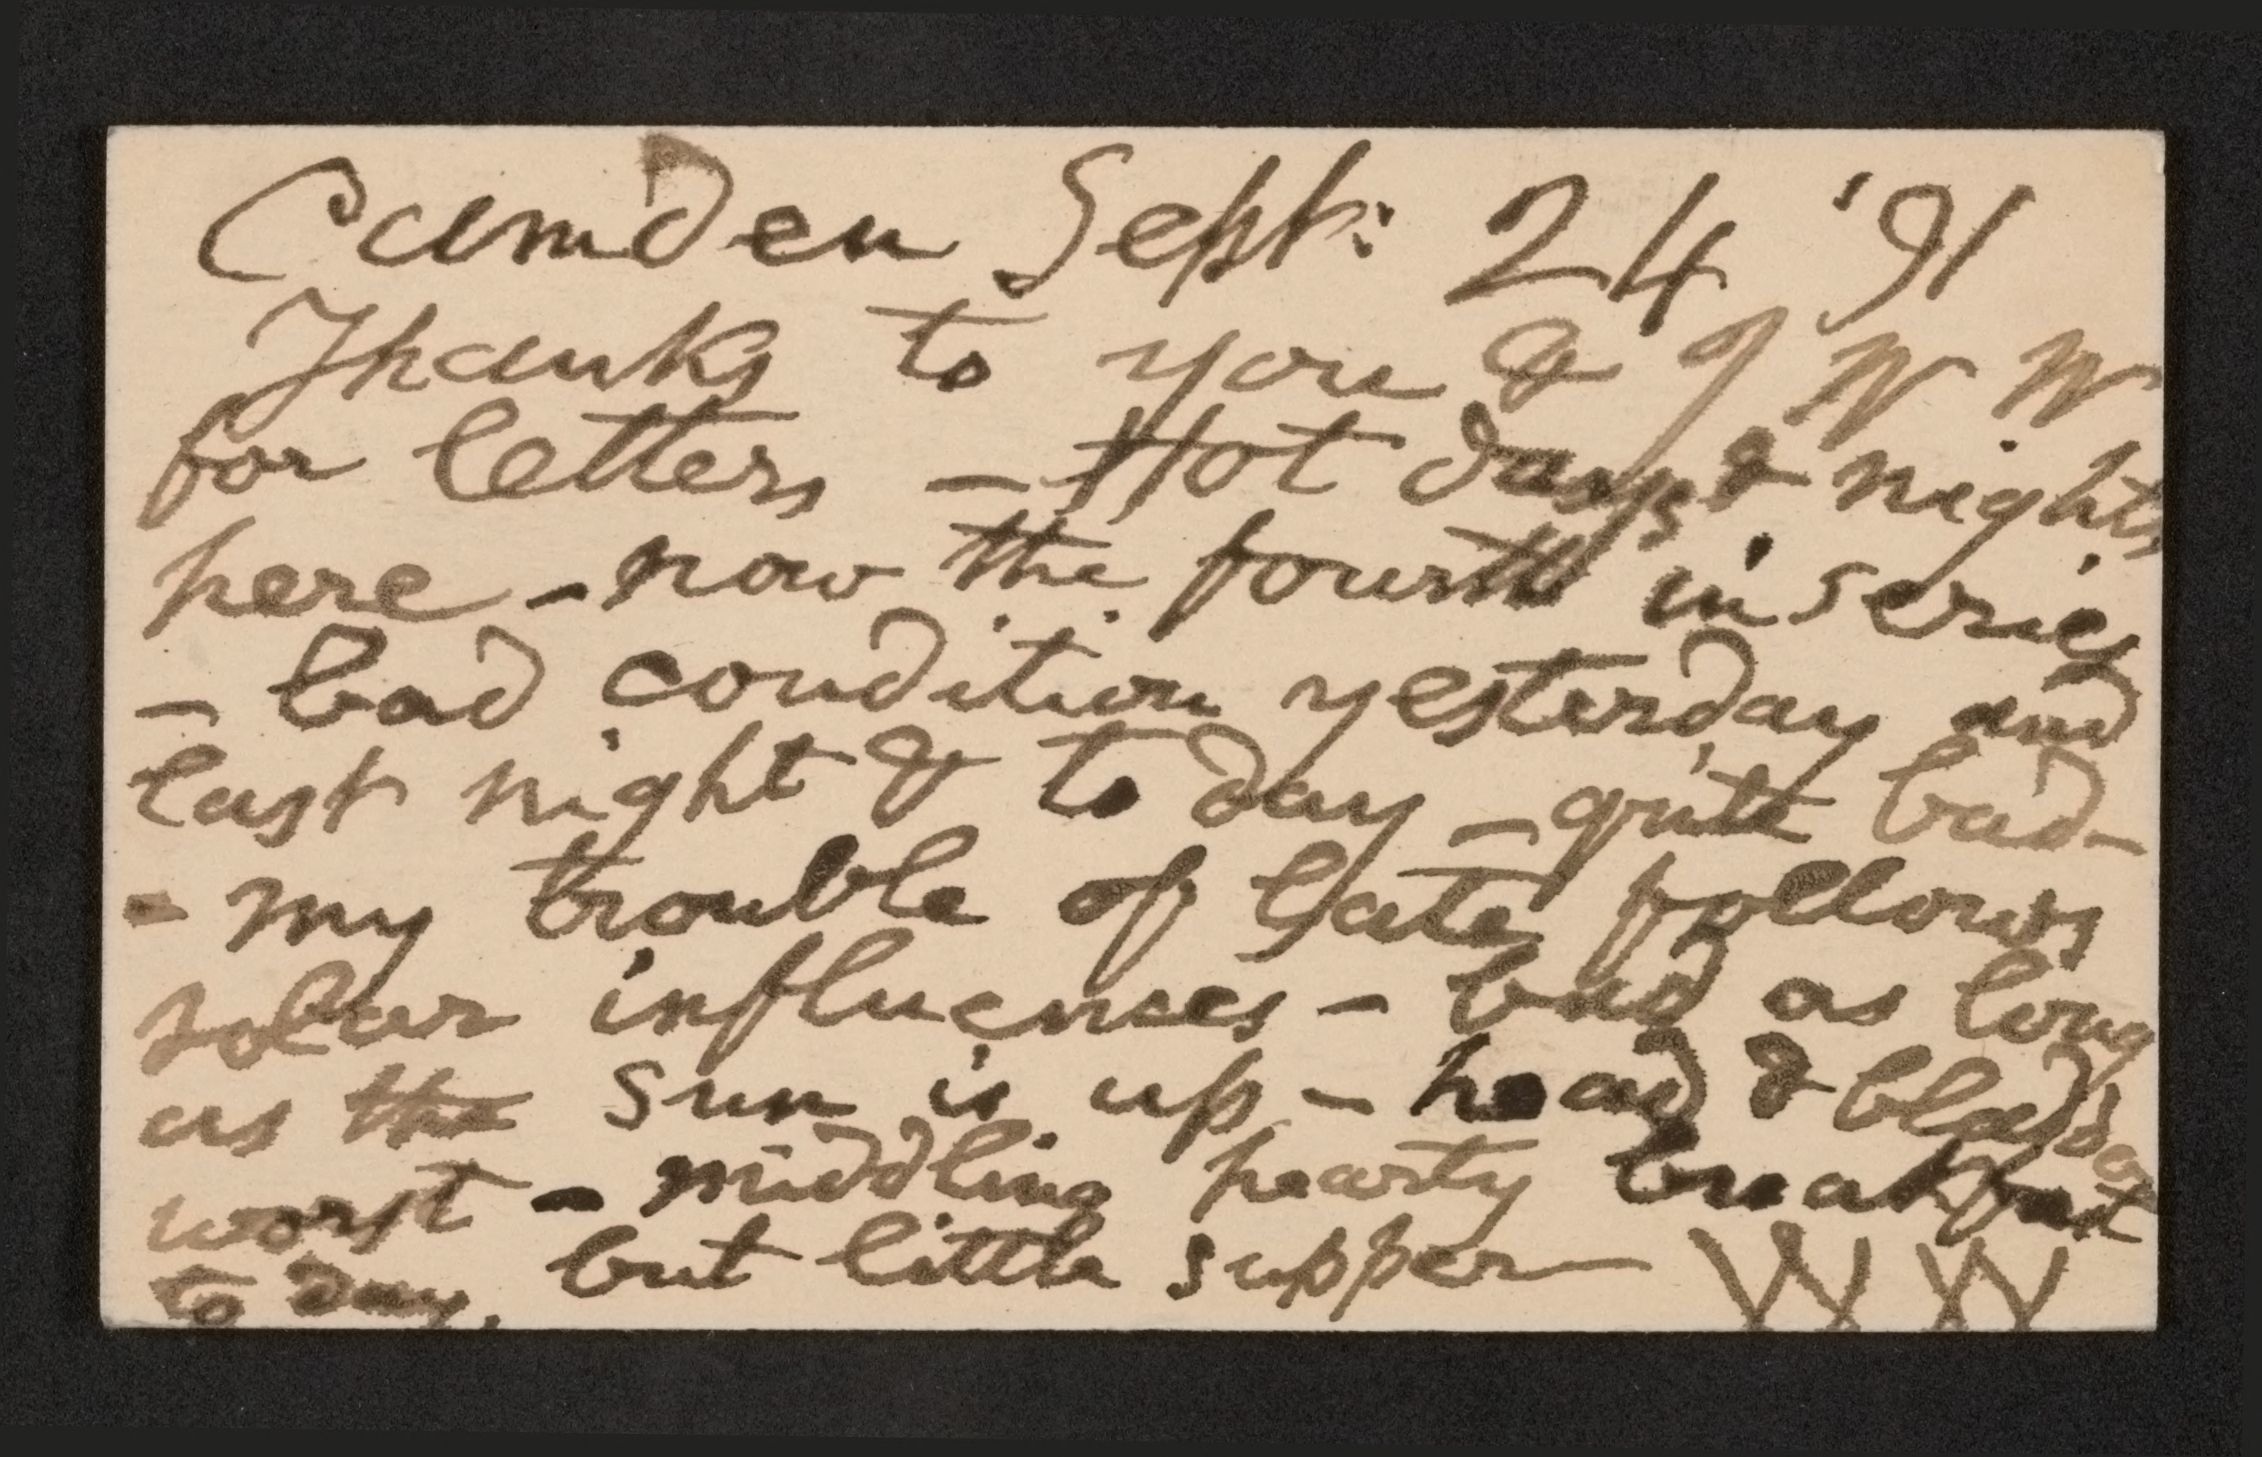 Camden Sept: 24 '91
Thanks to you & J W W
for letters – Hot days & nights
here – now the fourth in series
– bad condition yesterday and
last night & to day – quite bad –
– my trouble of late follows
solar influences – bad as long
as the sun is up – head & bladder
worst – middling hearty breakfast
to day, but little supper – W W